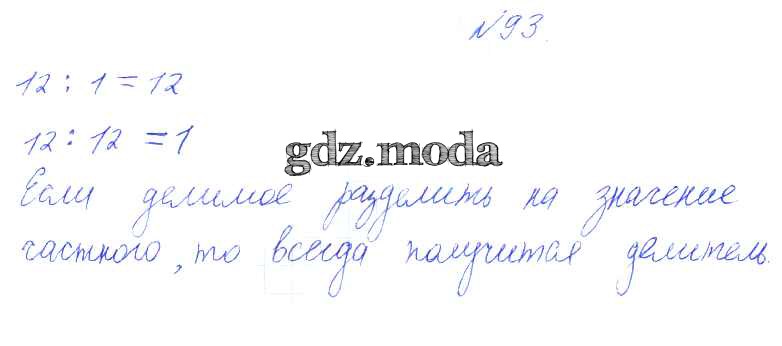 №93.
12 : 1 = 12
12 : 12 = 1
gdz.moda
Если делимое разделить на значение
частного, то всегда получится делитель.